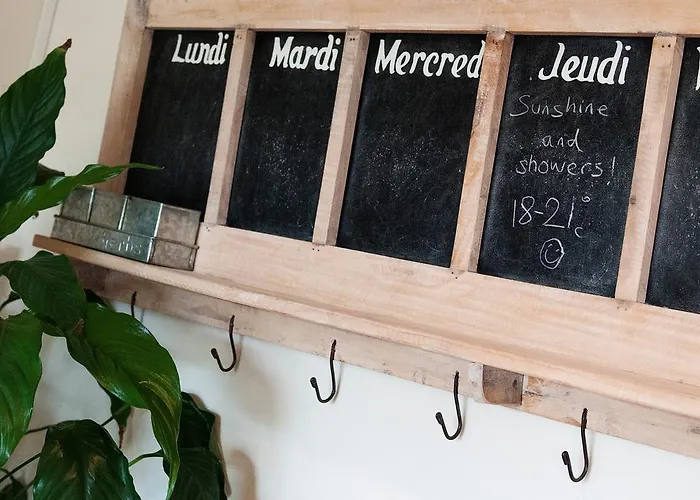 Lundi
Mardi
Mercred
Jeudi
Sunshine
and
showers!
18-21°c
Herbs